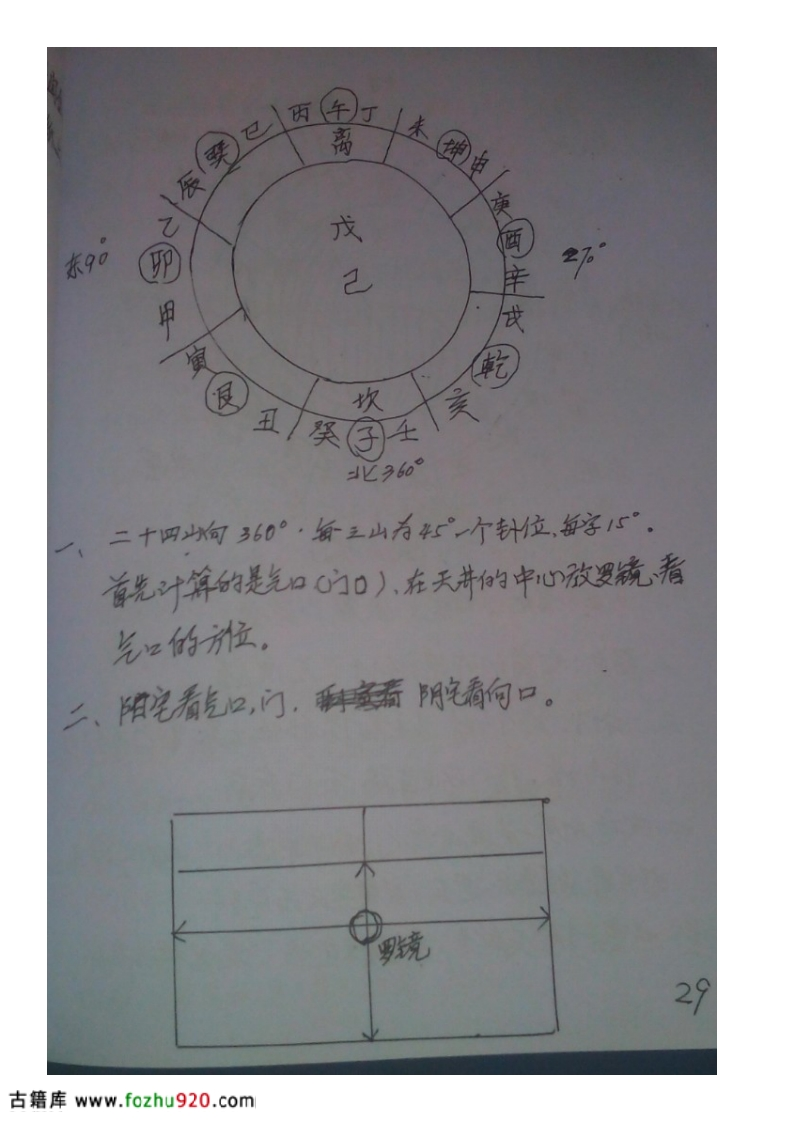 丙 午 丁
离
未 坤 申
庚 酉 辛
戌 乾 亥
壬 子 癸
坎
丑 艮 寅
甲 卯 乙
辰 巽 巳
戊
己
东90°
270°
北360°
一、二十四山向360°.每三山为45°一个卦位、每字15°.
首先计算的是气口(门口)、在天井的中心放罗镜、看
气口的方位。
二、阳宅看气口,门, 阴宅看向口。
罗镜
29
古籍库 www.fozhu920.com